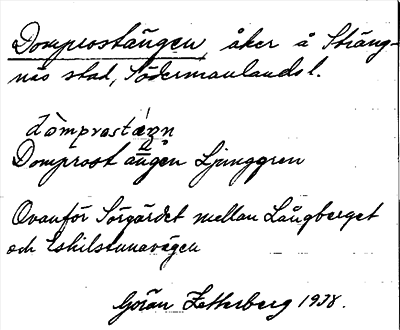 Domprostängen, åker å Sträng-
näs stad, Södermanlands l.
dòmprostǽŋn
Domprost ängen Ljunggren
Ovanför Sörgärdet mellan Långberget
och Eskilstunavägen
Göran Zetterberg 1938.